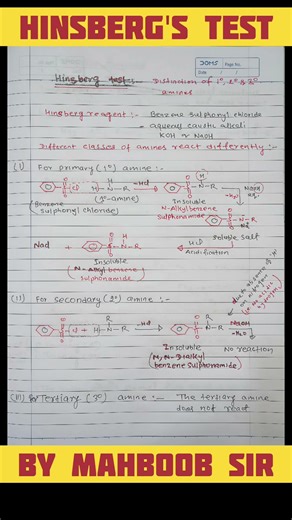 HINSBERG'S TEST
DOMS Page No.
Date / /
Hinsberg test :- Distinction of 1°, 2° & 3°
amines
Hinsberg reagent :- Benzene sulphonyl chloride
- aqueous caustic alkali
KOH or NaOH
Different classes of amines react differently :-
(I) For primary (1°) amine :-
H
-S-Cl + H-N-R -Hcl → -S-N-R NaOH
(1°-amine) aq.
(Benzene Insoluble -H₂O
sulphonyl chloride) N-Alkylbenzene
Sulphonamide
-S-N-R
soluble salt
Nacl + -S-N-R ← Hcl
Acidification
Insoluble
(N-Alkyl benzene
Sulphonamide)
(II) For secondary (2°) amine :-
R R
-S-Cl + H-N-R -Hcl → -S-N-R NaOH
-H₂O
Insoluble No reaction
(N,N-Dialkyl
benzene sulphonamide)
(III) For Tertiary (3°) amine :- The tertiary amine
does not react
BY MAHBOOB SIR